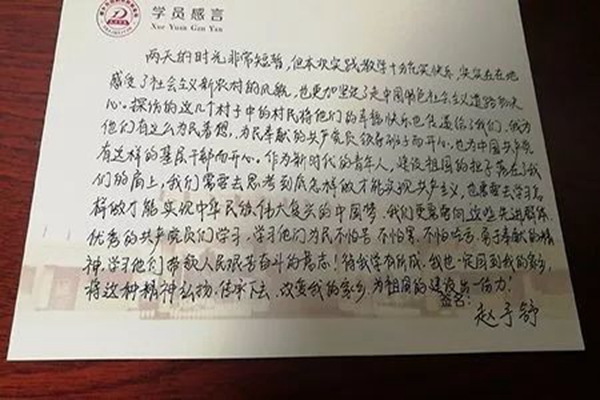 学员感言
Xue Yuan Gan Yan
两天的时光非常短暂，但本次实践教学十分充实快乐，实实在在地
感受了社会主义新农村的风貌，也更加坚定了走中国特色社会主义道路的决
心。探访的这几个村子中的村民将他们的幸福快乐也传递给了我们，我为
他们有这么为民着想，为民奉献的共产党员领导班子而开心，也为中国共产党
有这样的基层干部而开心。作为新时代的青年人，建设祖国的担子落在了我
们的肩上，我们需要去思考到底怎样做才能实现共产主义，也需要去学习怎
样做才能实现中华民族伟大复兴的中国梦。我们更要向这些先进群体
优秀的共产党员们学习，学习他们为民不怕苦、不怕累、不怕吃亏、勇于奉献的精
神，学习他们带领人民艰苦奋斗的意志！待我学有所成，我也一定回到我的家乡，
将这种精神弘扬、传承下去，改变我的家乡，为祖国的建设出一份力！
签名：
赵予舒